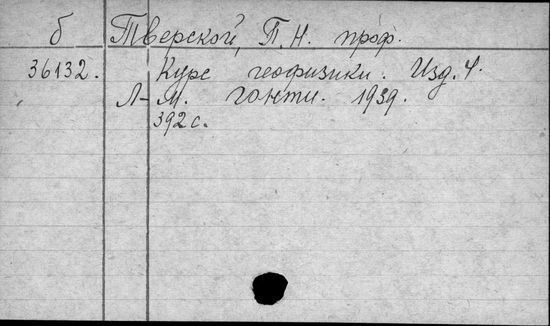 б Тверской, П.Н. проф.
36132. Курс геофизики. Изд. 4.
Л-М. ГОНТИ. 1939.
392 с.